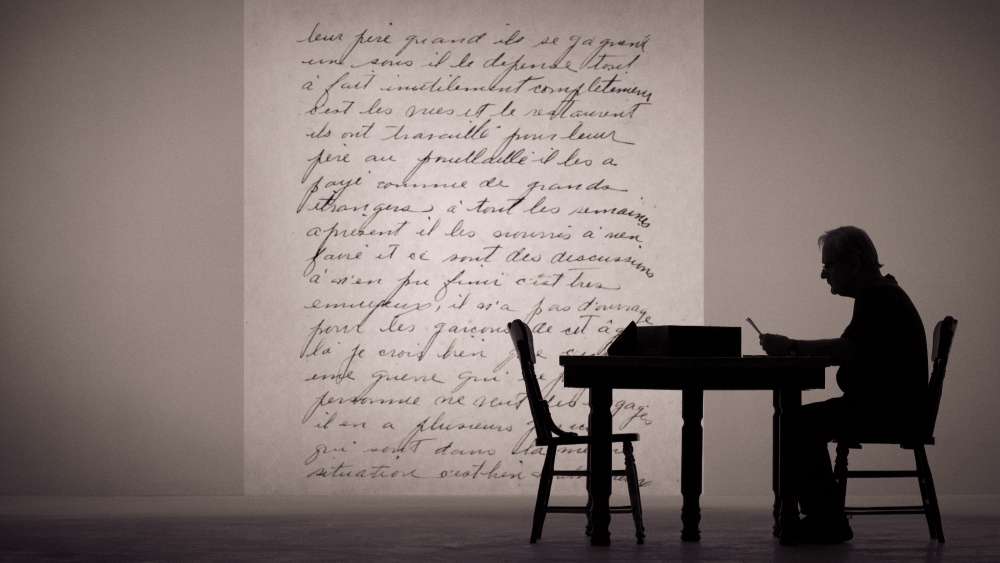 leur père quand ils se gagnent
un sous il le dépense tout
à fait inutilement complètement
c'est les vues et le restaurent
ils ont travaillé pour leur
père au poullaillé il les a
payé comme de grands
étrangers à tout les semaines
apresent il les nourris à rien
faire et ce sont des discussions
à n'en pu finir c'est tres
ennuyeux, il n'a pas d'ouvrage
pour les garçons de cet âge
là je crois bien que
une guerre qui
personne ne veut les engagés
il en a plusieurs
qui sont dans la même
situation c'est bien